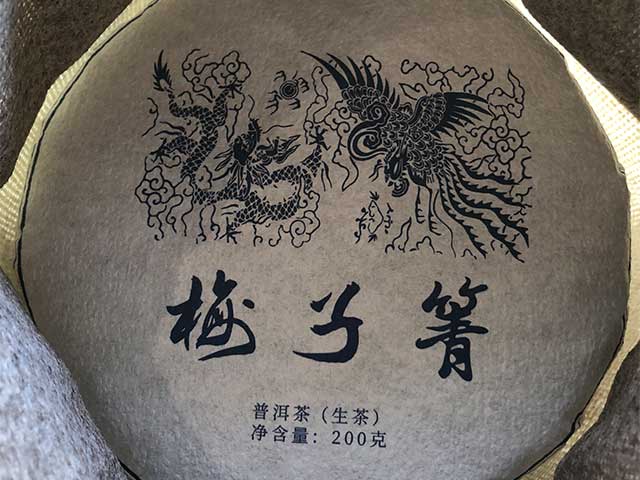 梅子箐
普洱茶（生茶）
净含量：200克